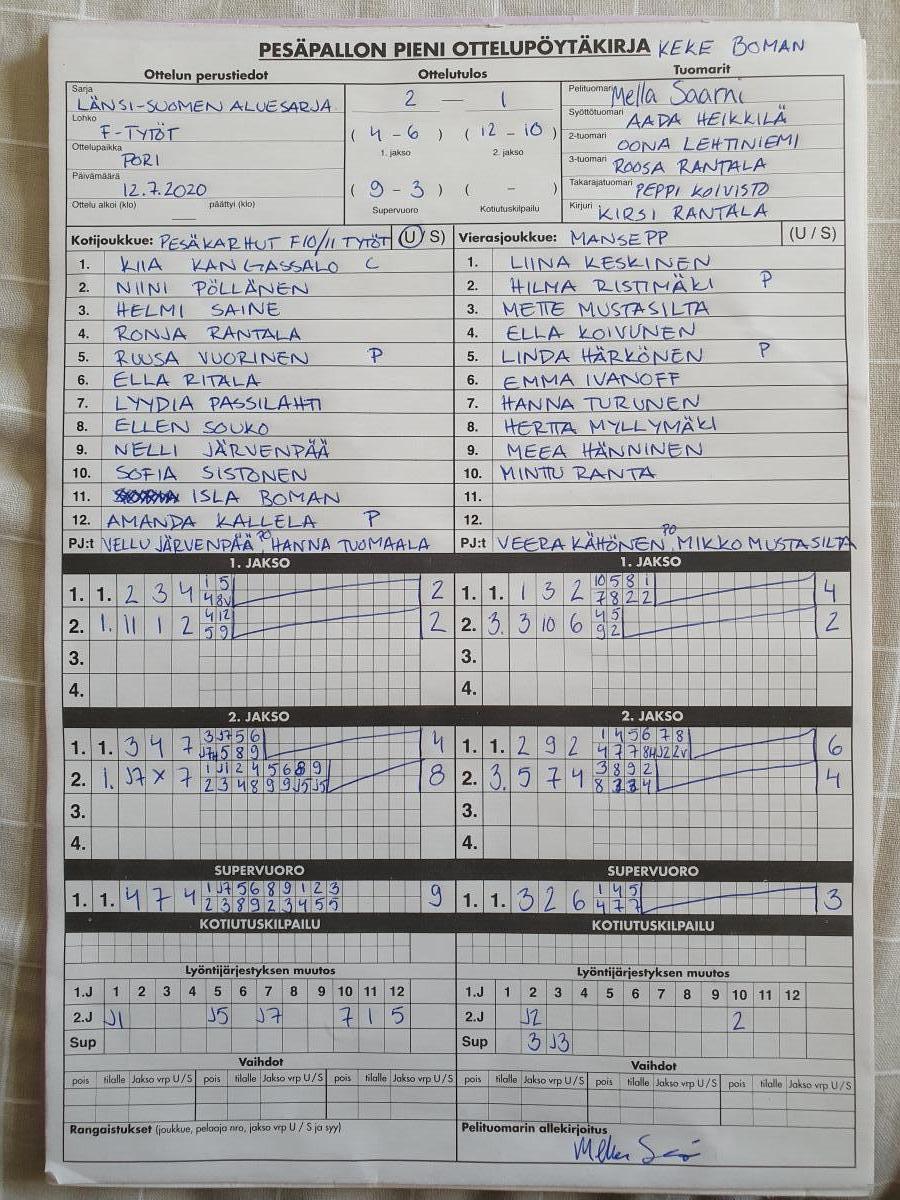 PESÄPALLON PIENI OTTELUPÖYTÄKIRJA KEKE BOMAN
Ottelun perustiedot Ottelutulos Tuomarit
Sarja LÄNSI-SUOMEN ALUESARJA
Lohko F-TYTÖT
Ottelupaikka PORI
Päivämäärä 12.7.2020
Ottelu alkoi (klo) päättyi (klo)
2 — 1
( 4 - 6 ) ( 12 - 10 )
1. jakso 2. jakso
( 9 - 3 ) ( - )
Supervuoro Kotiutuskilpailu
Pelituomari Mella Saarni
Syöttötuomari AADA HEIKKILÄ
2-tuomari OONA LEHTINIEMI
3-tuomari ROOSA RANTALA
Takarajatuomari PEPPI KOIVISTO
Kirjuri KIRSI RANTALA
Kotijoukkue: PESÄKARHUT F10/11 TYTÖT (U/S)
1. KIIA KANGASSALO C
2. NIINI PÖLLÄNEN
3. HELMI SAINE
4. RONJA RANTALA
5. RUUSA VUORINEN P
6. ELLA RITALA
7. LYYDIA PASSILAHTI
8. ELLEN SOUKO
9. NELLI JÄRVENPÄÄ
10. SOFIA SISTONEN
11. ISLA BOMAN
12. AMANDA KALLELA P
PJ:t VELLU JÄRVENPÄÄ PO, HANNA TUOMAALA
Vierasjoukkue: MANSEPP (U/S)
1. LIINA KESKINEN
2. HILMA RISTIMÄKI P
3. METTE MUSTASILTA
4. ELLA KOIVUNEN
5. LINDA HÄRKÖNEN P
6. EMMA IVANOFF
7. HANNA TURUNEN
8. HERTTA MYLLYMÄKI
9. MEEA HÄNNINEN
10. MINTTU RANTA
11.
12.
PJ:t VEERA KÄHÖNEN PO, MIKKO MUSTASILTA
1. JAKSO
1. 1. 2 3 4 1 5 2
4 8v
2. 1. 11 1 2 4 12 2
5 9
3.
4.
1. JAKSO
1. 1. 1 3 2 10 5 8 1 4
7 8 2 2
2. 3. 3 10 6 4 5 2
9 2
3.
4.
2. JAKSO
1. 1. 3 4 7 3 J7 5 6 4
J7 4 5 8 9
2. 1. J7 x 7 1 J1 2 4 5 6 8 9 8
2 3 4 8 9 9 J5 J5
3.
4.
2. JAKSO
1. 1. 2 9 2 1 4 5 6 7 8 6
4 7 7 8 4 J2 2v
2. 3. 5 7 4 3 8 9 2 4
8 4
3.
4.
SUPERVUORO
1. 1. 4 7 4 1 J7 5 6 8 9 1 2 3 9
2 3 8 9 2 3 4 5 5
SUPERVUORO
1. 1. 3 2 6 1 4 5 3
4 7 7
KOTIUTUSKILPAILU
KOTIUTUSKILPAILU
Lyöntijärjestyksen muutos
1.J 1 2 3 4 5 6 7 8 9 10 11 12
2.J J1 J5 J7 7 1 5
Sup
Lyöntijärjestyksen muutos
1.J 1 2 3 4 5 6 7 8 9 10 11 12
2.J J2 2
Sup 3 J3
Vaihdot
pois tilalle Jakso vrp U/S pois tilalle Jakso vrp U/S pois tilalle Jakso vrp U/S
Vaihdot
pois tilalle Jakso vrp U/S pois tilalle Jakso vrp U/S pois tilalle Jakso vrp U/S
Rangaistukset (joukkue, pelaaja nro, jakso vrp U/S ja syy)
Pelituomarin allekirjoitus